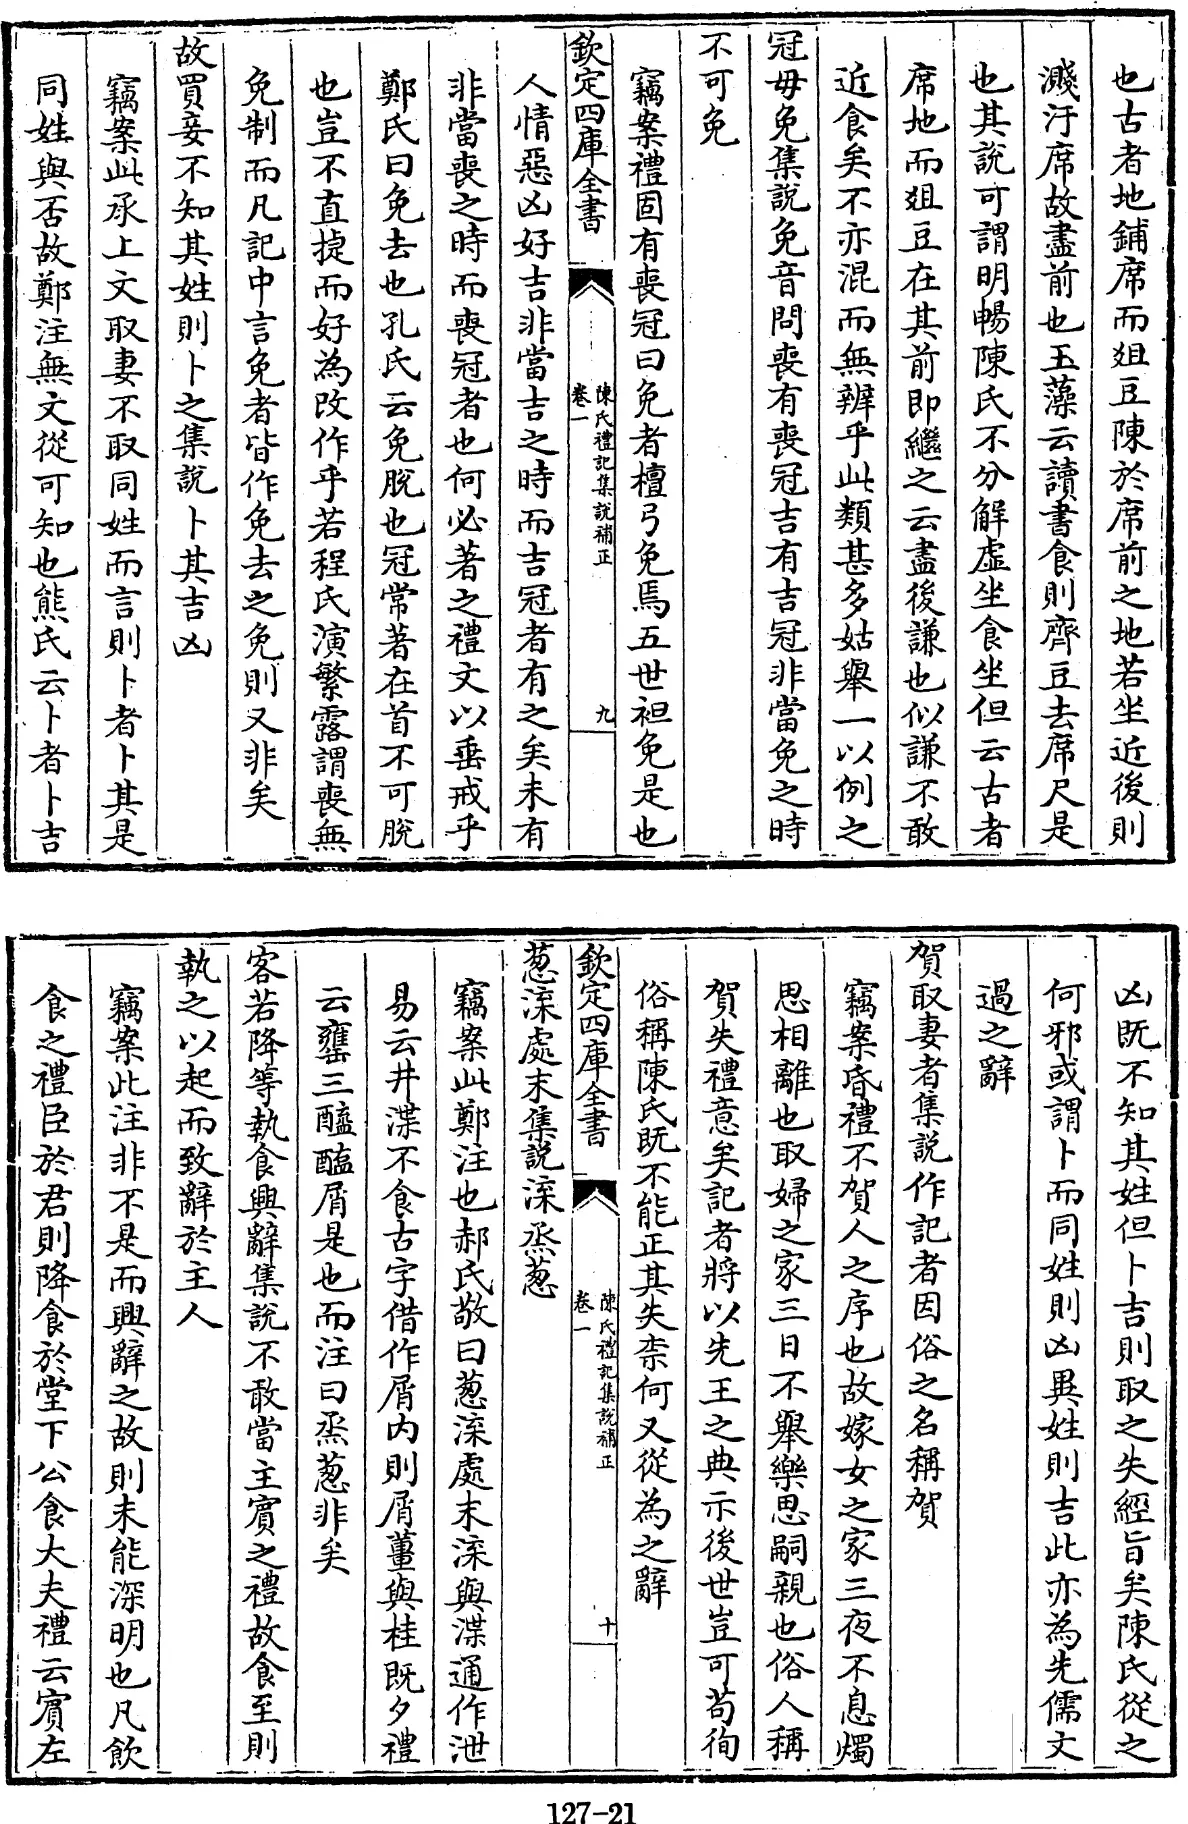 也古者地鋪席而俎豆陳於席前之地若坐近後則
濺汙席故盡前也玉藻云讀書食則齊豆去席尺是
也其說可謂明暢陳氏不分解虛坐食坐但云古者
席地而俎豆在其前即繼之云盡後謙也似謙不敢
近食矣不亦混而無辨乎此類甚多姑舉一以例之
冠毋免集説免音問喪有喪冠吉有吉冠非當免之時
不可免
竊案禮固有喪冠曰免者檀弓免焉五世袒免是也
欽定四庫全書
陳氏禮記集說補正
卷一
九
人情惡凶好吉非當吉之時而吉冠者有之矣未有
非當喪之時而喪冠者也何必著之禮文以垂戒乎
鄭氏曰免去也孔氏云免脫也冠常著在首不可脫
也豈不直捷而好為改作乎若程氏演繁露謂喪無
免制而凡記中言免者皆作免去之免則又非矣
故買妾不知其姓則卜之集說卜其吉凶
竊案此承上文取妻不取同姓而言則卜者卜其是
同姓與否故鄭注無文從可知也熊氏云卜者卜吉
凶既不知其姓但卜吉則取之失經旨矣陳氏從之
何邪或謂卜而同姓則凶異姓則吉此亦為先儒文
過之辭
賀取妻者集說作記者因俗之名稱賀
竊案昏禮不賀人之序也故嫁女之家三夜不息燭
思相離也取婦之家三日不舉樂思嗣親也俗人稱
賀失禮意矣記者將以先王之典示後世豈可茍徇
俗稱陳氏既不能正其失柰何又從為之辭
欽定四庫全書
陳氏禮記集說補正
卷一
十
蔥渫處末集說渫烝蔥
竊案此鄭注也郝氏敬曰蔥渫處末渫與渫通作泄
易云井渫不食古字借作屑内則屑薑與桂既夕禮
云罋三醯醢屑是也而注曰烝蔥非矣
客若降等執食興辭集說不敢當主賓之禮故食至則
執之以起而致辭於主人
竊案此注非不是而興辭之故則未能深明也凡飲
食之禮臣於君則降食於堂下公食大夫禮云賓左
127-21